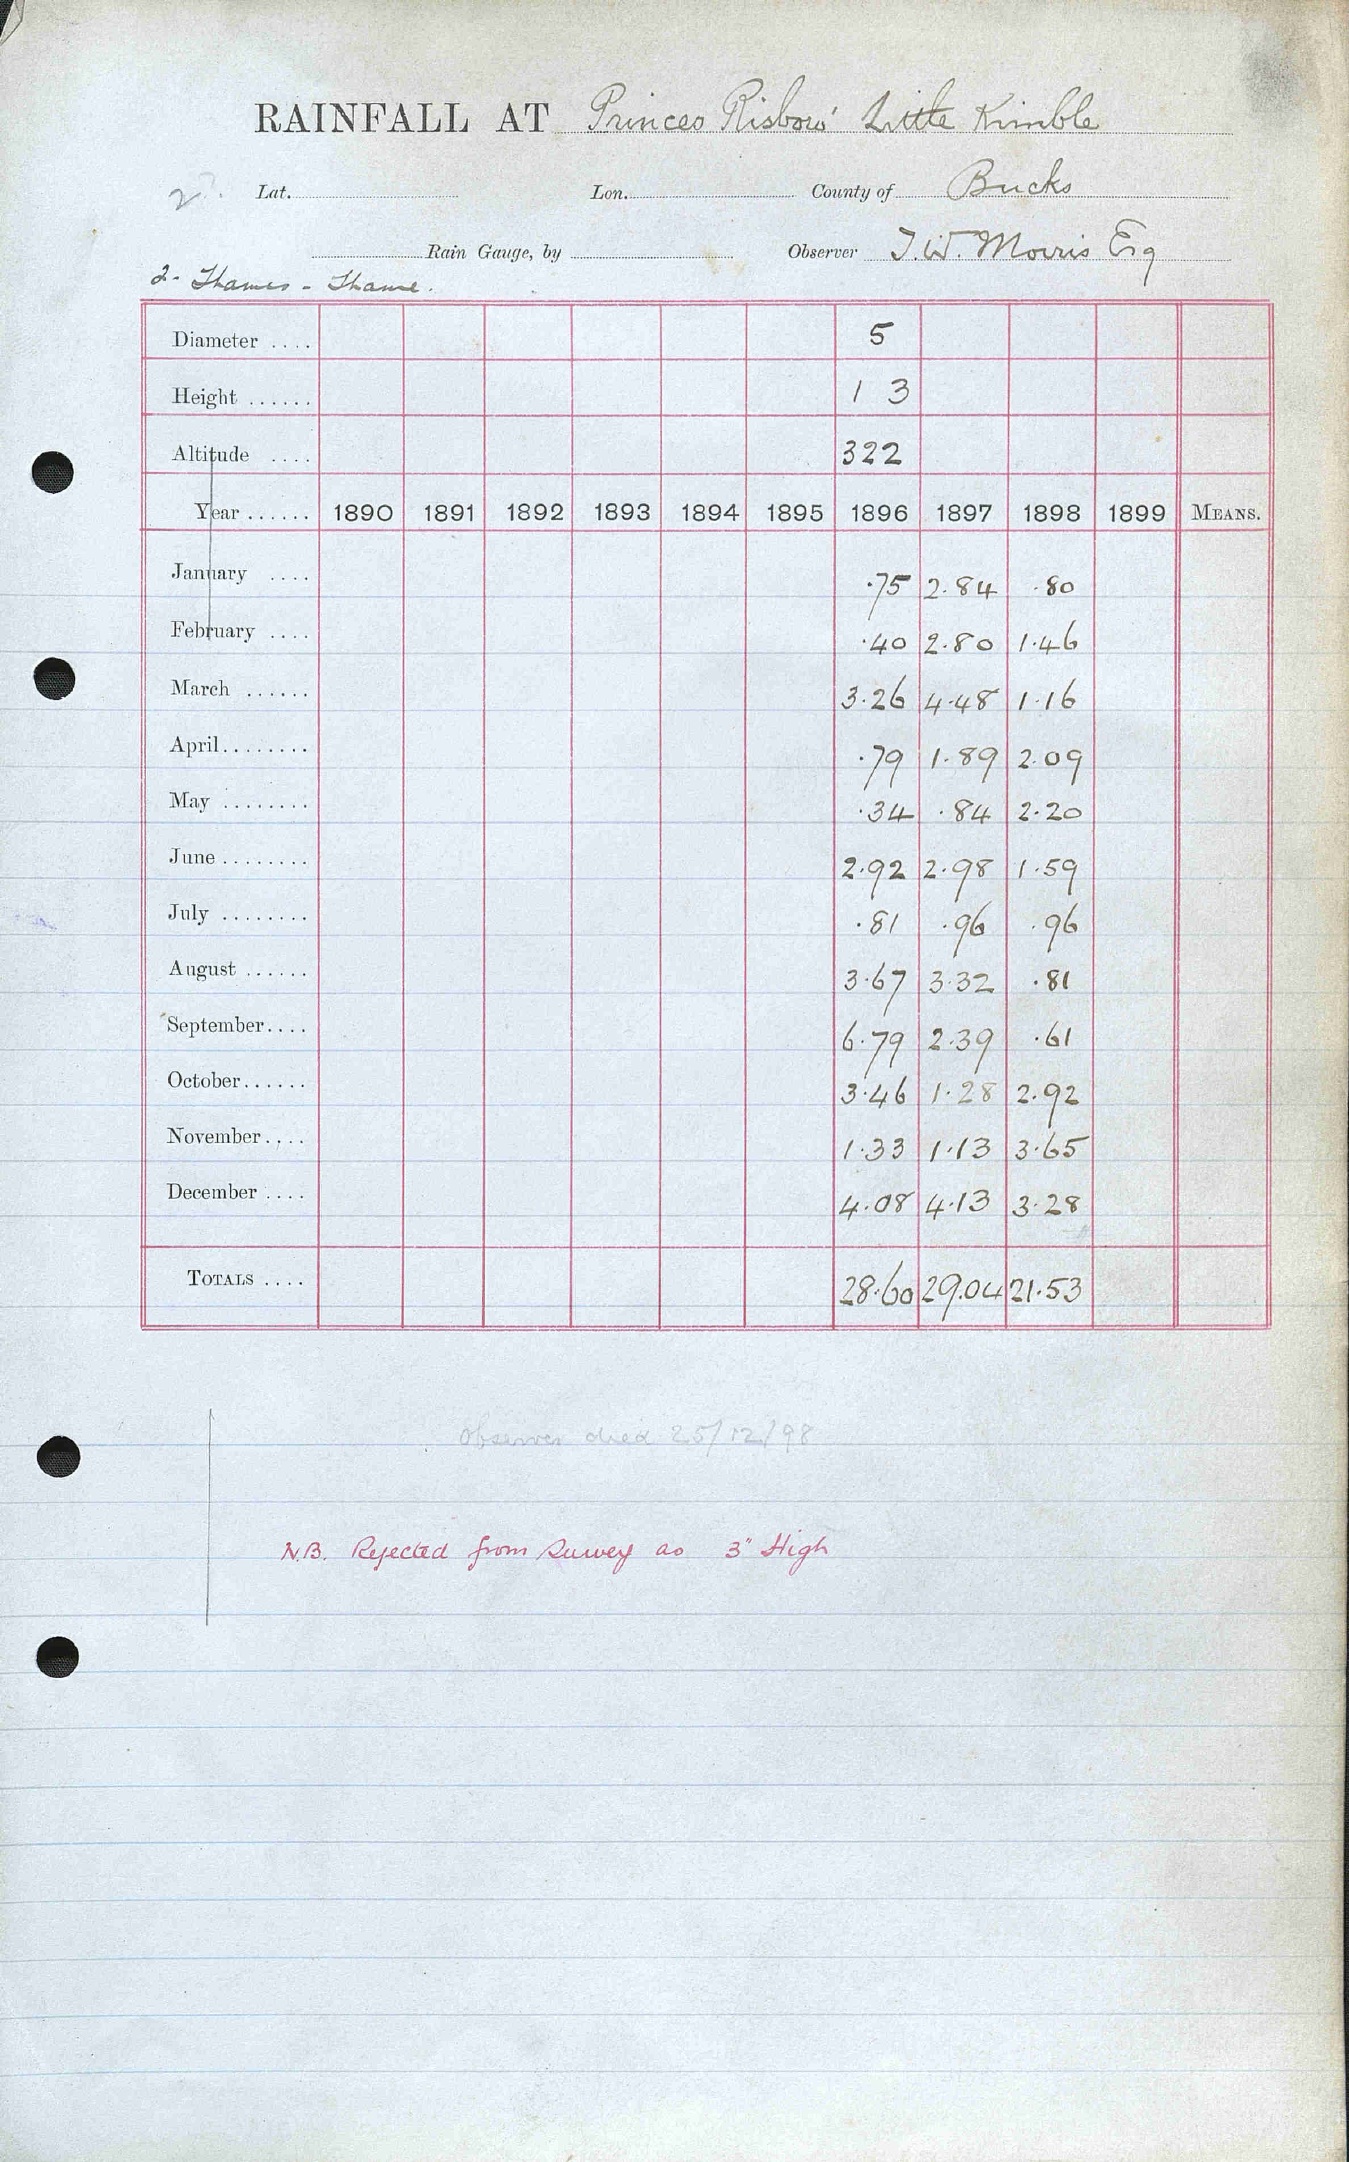 RAINFALL AT Princes Risboro' Little Kimble
Lat. Lon. County of Bucks
Rain Gauge, by Observer T. W. Morris Esq
2- Thames - Thame.
Diameter .... 5
Height ...... 1 3
Altitude .... 322
Year ...... 1890 1891 1892 1893 1894 1895 1896 1897 1898 1899 MEANS.
January .... .75 2.84 .80
February .... .40 2.80 1.46
March ...... 3.26 4.48 1.16
April ........ .79 1.89 2.09
May ........ .34 .84 2.20
June ........ 2.92 2.98 1.59
July ........ .81 .96 .96
August ...... 3.67 3.32 .81
September .... 6.79 2.39 .61
October ...... 3.46 1.28 2.92
November .... 1.33 1.13 3.65
December .... 4.08 4.13 3.28
TOTALS .... 28.60 29.04 21.53
Observer died 25/12/98
N.B. Rejected from Survey as 3" High